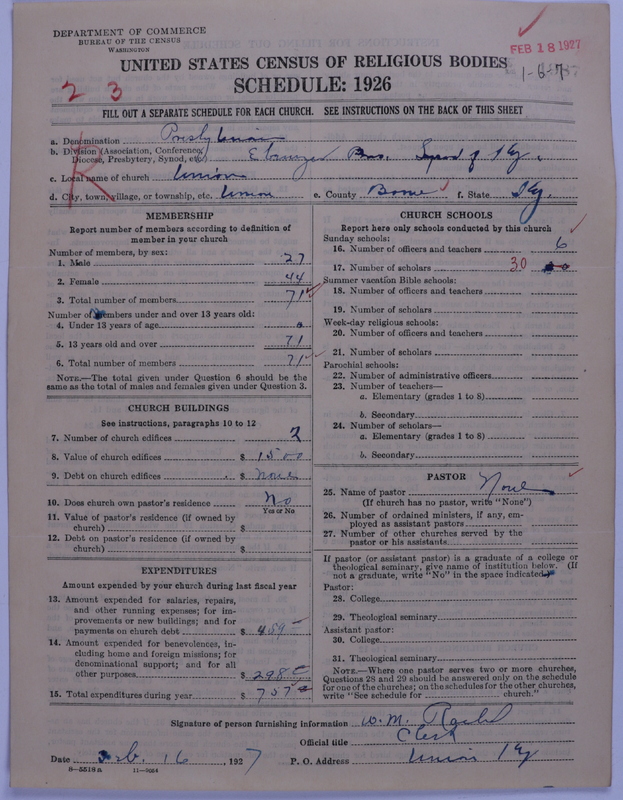 DEPARTMENT OF COMMERCE
BUREAU OF THE CENSUS
WASHINGTON
FEB 18 1927
UNITED STATES CENSUS OF RELIGIOUS BODIES
1-6-7
SCHEDULE: 1926
2 3
FILL OUT A SEPARATE SCHEDULE FOR EACH CHURCH. SEE INSTRUCTIONS ON THE BACK OF THIS SHEET
R
a. Denomination Presbyterian
b. Division (Association, Conference, Diocese, Presbytery, Synod, etc.) Ebenezer Pres. Synod of Ky.
c. Local name of church Union
d. City, town, village, or township, etc. Union e. County Boone f. State Ky.
MEMBERSHIP
Report number of members according to definition of
member in your church
Number of members, by sex:
1. Male 27
2. Female 44
3. Total number of members 71
Number of members under and over 13 years old:
4. Under 13 years of age 0
5. 13 years old and over 71
6. Total number of members 71
NOTE.—The total given under Question 6 should be the
same as the total of males and females given under Question 3.
CHURCH BUILDINGS
See instructions, paragraphs 10 to 12
7. Number of church edifices
8. Value of church edifices $ 1500
9. Debt on church edifices $ None
10. Does church own pastor's residence No
Yes or No
11. Value of pastor's residence (if owned by
church) $
12. Debt on pastor's residence (if owned by
church) $
EXPENDITURES
Amount expended by your church during last fiscal year
13. Amount expended for salaries, repairs,
and other running expenses; for im-
provements or new buildings; and for
payments on church debt $ 459
14. Amount expended for benevolences, in-
cluding home and foreign missions; for
denominational support; and for all
other purposes $ 298
15. Total expenditures during year $ 757
CHURCH SCHOOLS
Report here only schools conducted by this church
Sunday schools:
16. Number of officers and teachers 6
17. Number of scholars 30
Summer vacation Bible schools:
18. Number of officers and teachers
19. Number of scholars
Week-day religious schools:
20. Number of officers and teachers
21. Number of scholars
Parochial schools:
22. Number of administrative officers
23. Number of teachers—
a. Elementary (grades 1 to 8)
b. Secondary
24. Number of scholars—
a. Elementary (grades 1 to 8)
b. Secondary
PASTOR
25. Name of pastor None
(If church has no pastor, write "None")
26. Number of ordained ministers, if any, em-
ployed as assistant pastors
27. Number of other churches served by the
pastor or his assistants
If pastor (or assistant pastor) is a graduate of a college or
theological seminary, give name of institution below. (If
not a graduate, write "No" in the space indicated.)
Pastor:
28. College
29. Theological seminary
Assistant pastor:
30. College
31. Theological seminary
NOTE.—Where one pastor serves two or more churches,
Questions 28 and 29 should be answered only on the schedule
for one of the churches; on the schedules for the other churches,
write "See schedule for church."
Signature of person furnishing information W. M. Rachal
Official title Clerk
Date Feb. 16, 1927 P. O. Address Union Ky
8—5518a 11—9064